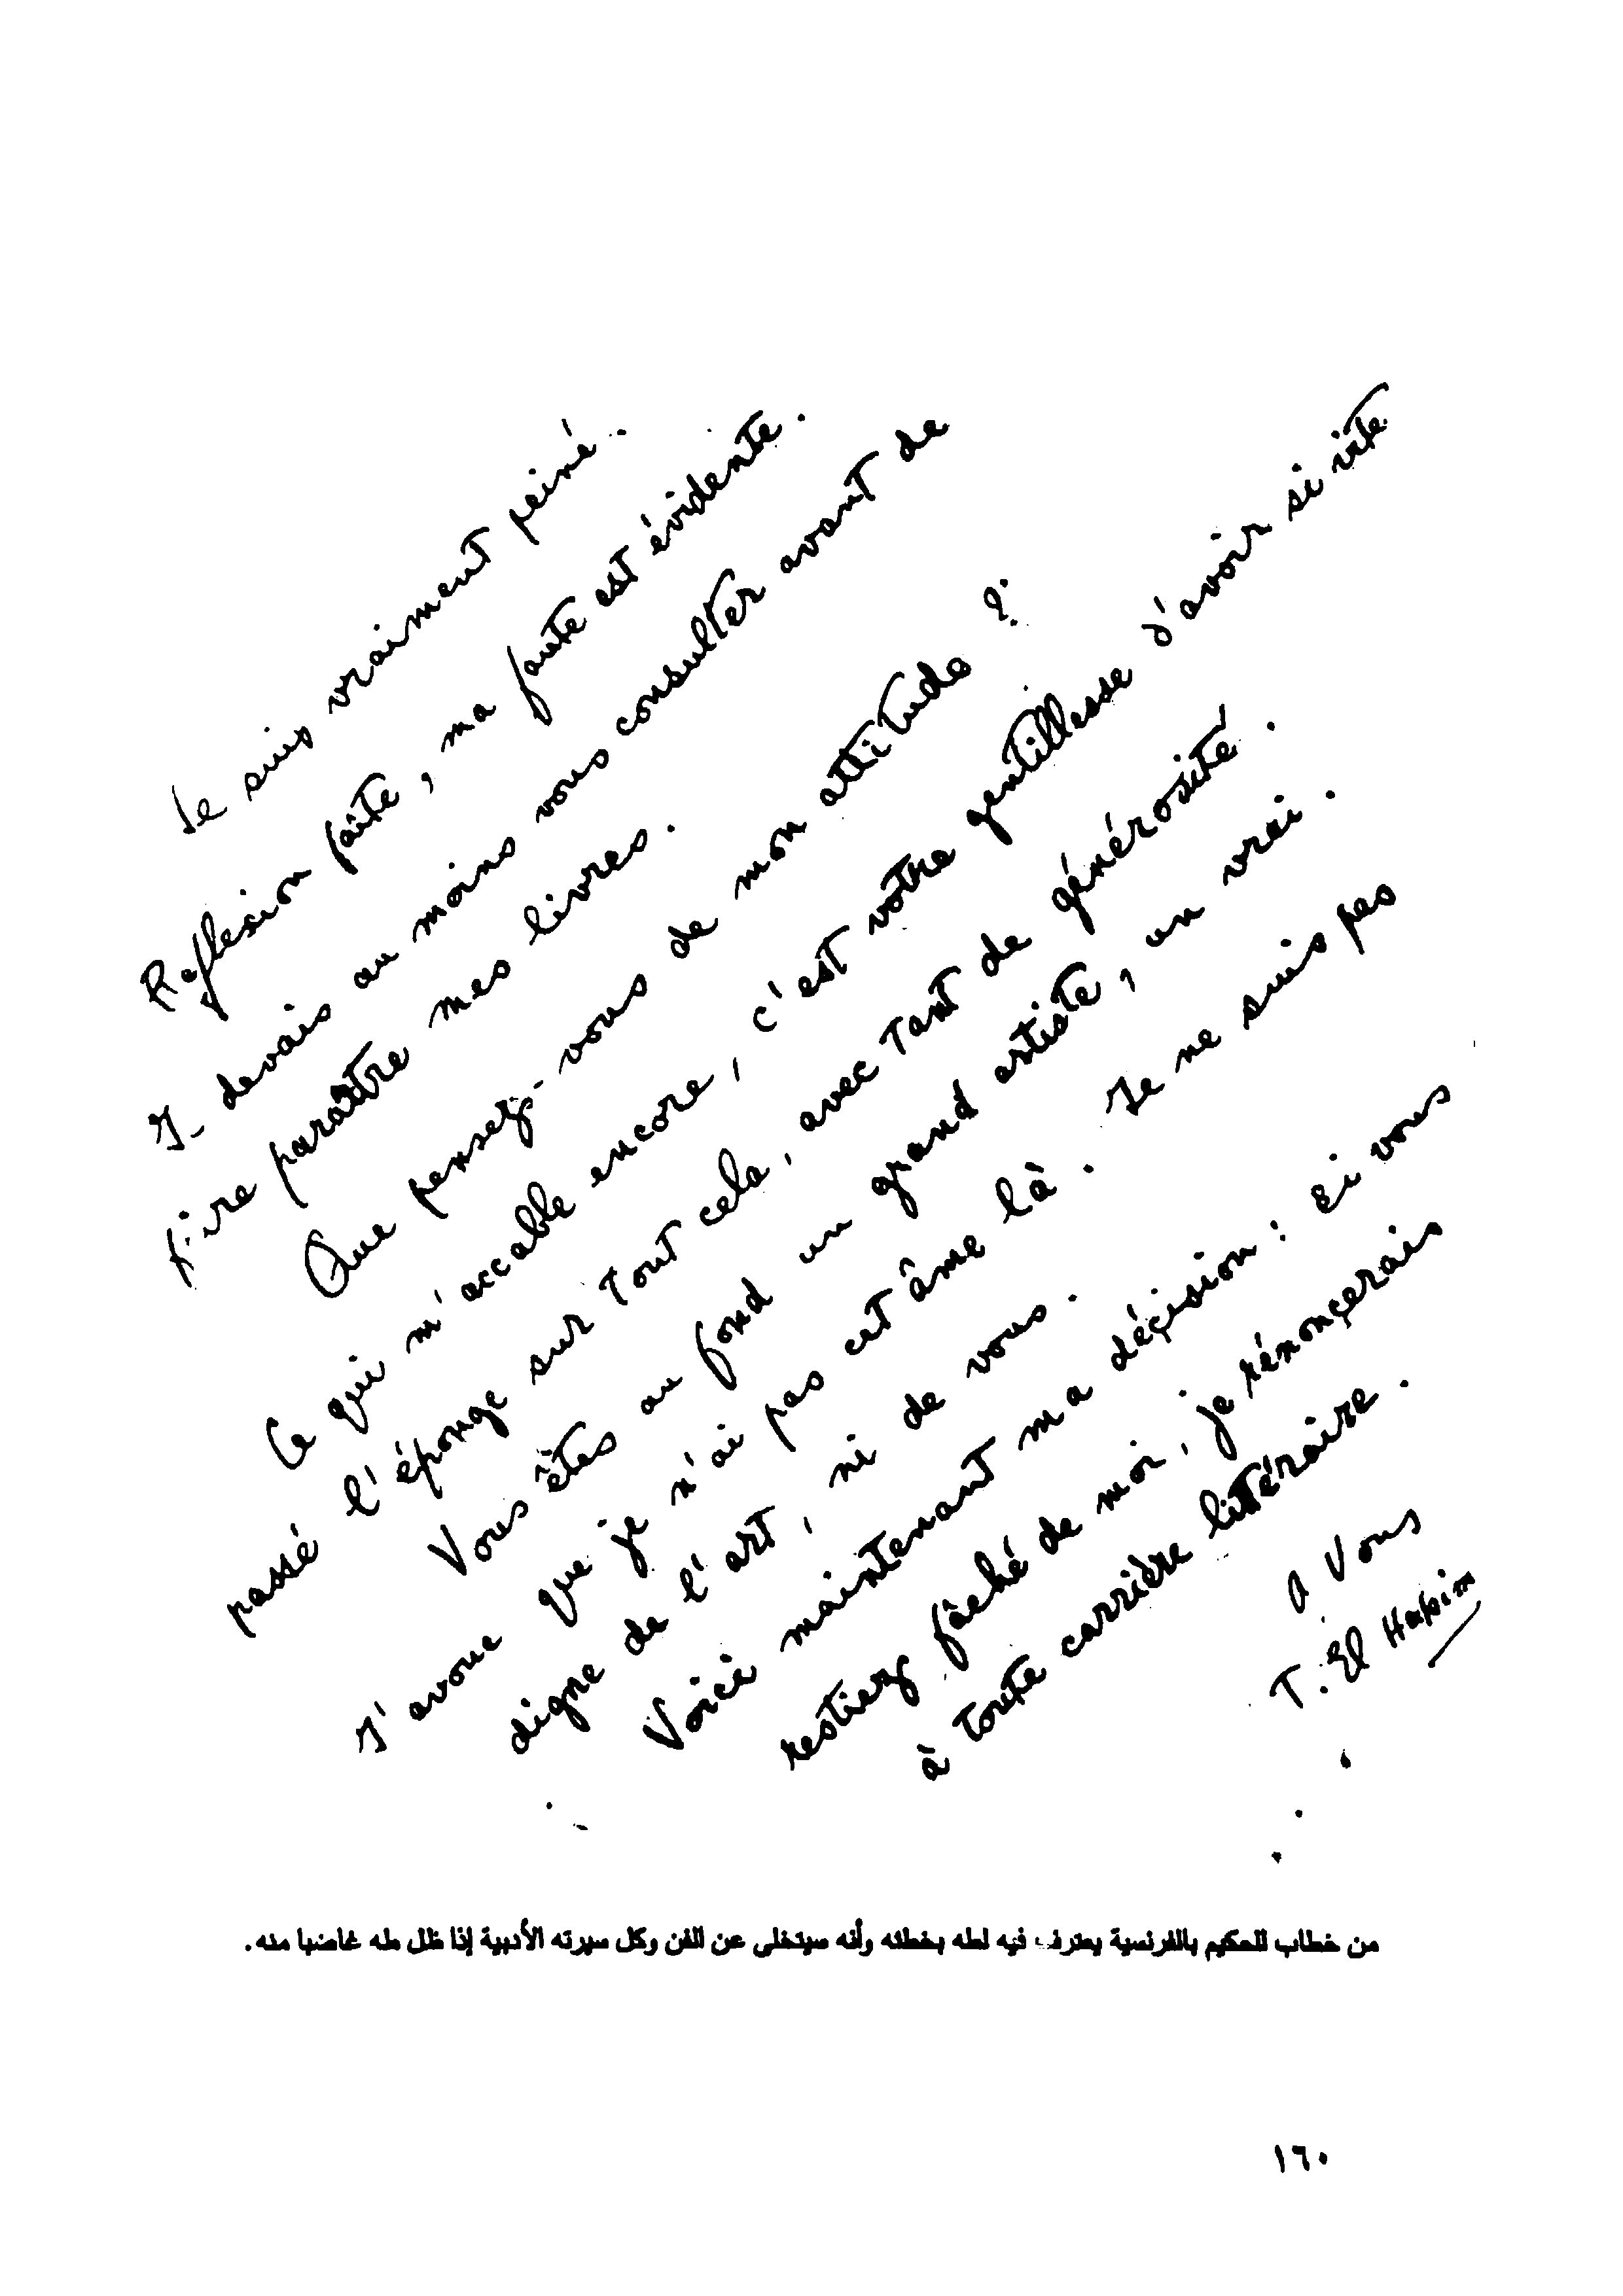 Je suis vraiment peiné.
Réflexion faite, ma faute est évidente.
Je devais au moins vous consulter avant de
faire paraître mes livres.
Que pensez-vous de mon attitude ?
Ce qui m'accable encore, c'est votre gentillesse d'avoir si vite
passé l'éponge sur tout cela, avec tant de générosité.
Vous êtes au fond un grand artiste, un vrai.
J'avoue que je n'ai pas cet âme là. Je ne suis pas
digne de l'art, ni de vous.
Voici maintenant ma déçision : si vous
restiez fâché de moi, je rénonçerais
à toute carrière littéraire.
A Vous
T. El Hakim
من خطاب للحكيم بالفرنسية يعترف فيه لطه بخطئه وأنه سيتخلى عن الفن وكل سيرته الأدبية إذا ظل طه غاضبا منه.
١٦٠